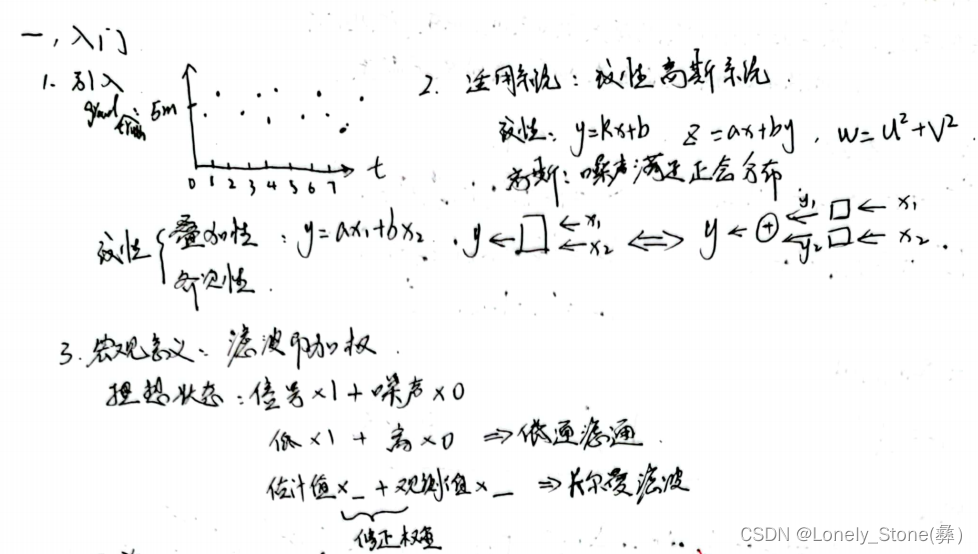 一，入门
1. 引入
ground truth 5m
0 1 2 3 4 5 6 7 t
2. 适用系统：线性高斯系统.
线性: y=kx+b z=ax+by, w=u²+v²
高斯: 噪声满足正态分布
线性 { 叠加性 : y=ax₁+bx₂ . y ← □ ← x₁ ← x₂ ⇔ y ← ⊕ y₁ ← □ ← x₁ y₂ ← □ ← x₂
齐次性.
3. 宏观意义: 滤波即加权.
理想状态: 信号×1+噪声×0
低×1 + 高×0 ⇒低通滤通.
估计值×_ +观测值×_ ⇒卡尔曼滤波
修正权重
CSDN @Lonely_Stone(彝)